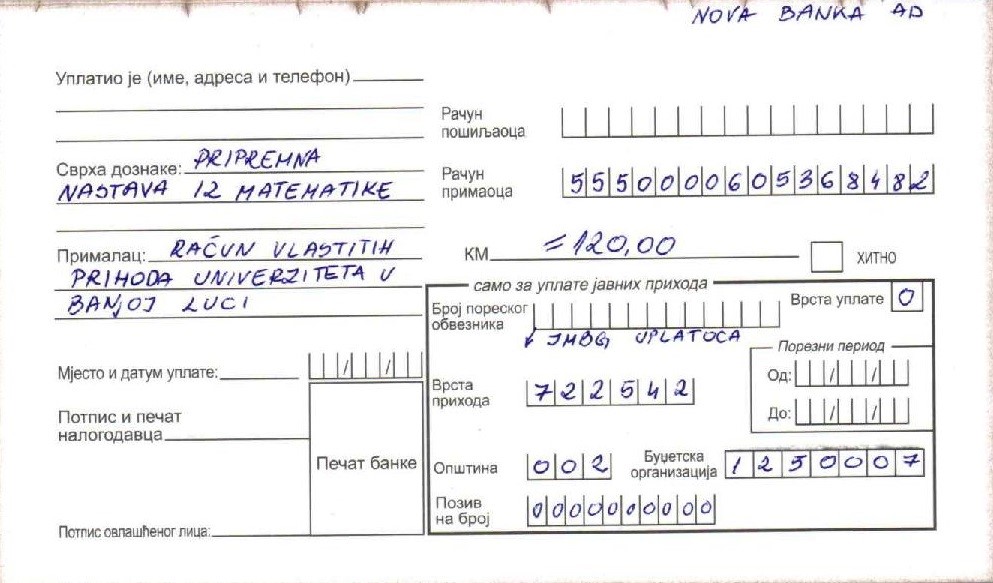 NOVA BANKA AD
Уплатио је (име, адреса и телефон)
Рачун
пошиљаоца
Сврха дознаке: PRIPREMNA
NASTAVA IZ MATEMATIKE
Рачун
примаоца
5550000605368482
Прималац: RAČUN VLASTITIH
PRIHODA UNIVERZITETA U
BANJOJ LUCI
КМ =120,00
ХИТНО
само за уплате јавних прихода
Број пореског
обвезника
Врста уплате 0
JMBG UPLATOCA
Порезни период
Мјесто и датум уплате: / /
Од: / /
Врста
прихода
722542
До: / /
Потпис и печат
налогодавца
Печат банке
Општина 002
Буџетска
организација
1250007
Позив
на број
0000000000
Потпис овлашћеног лица: